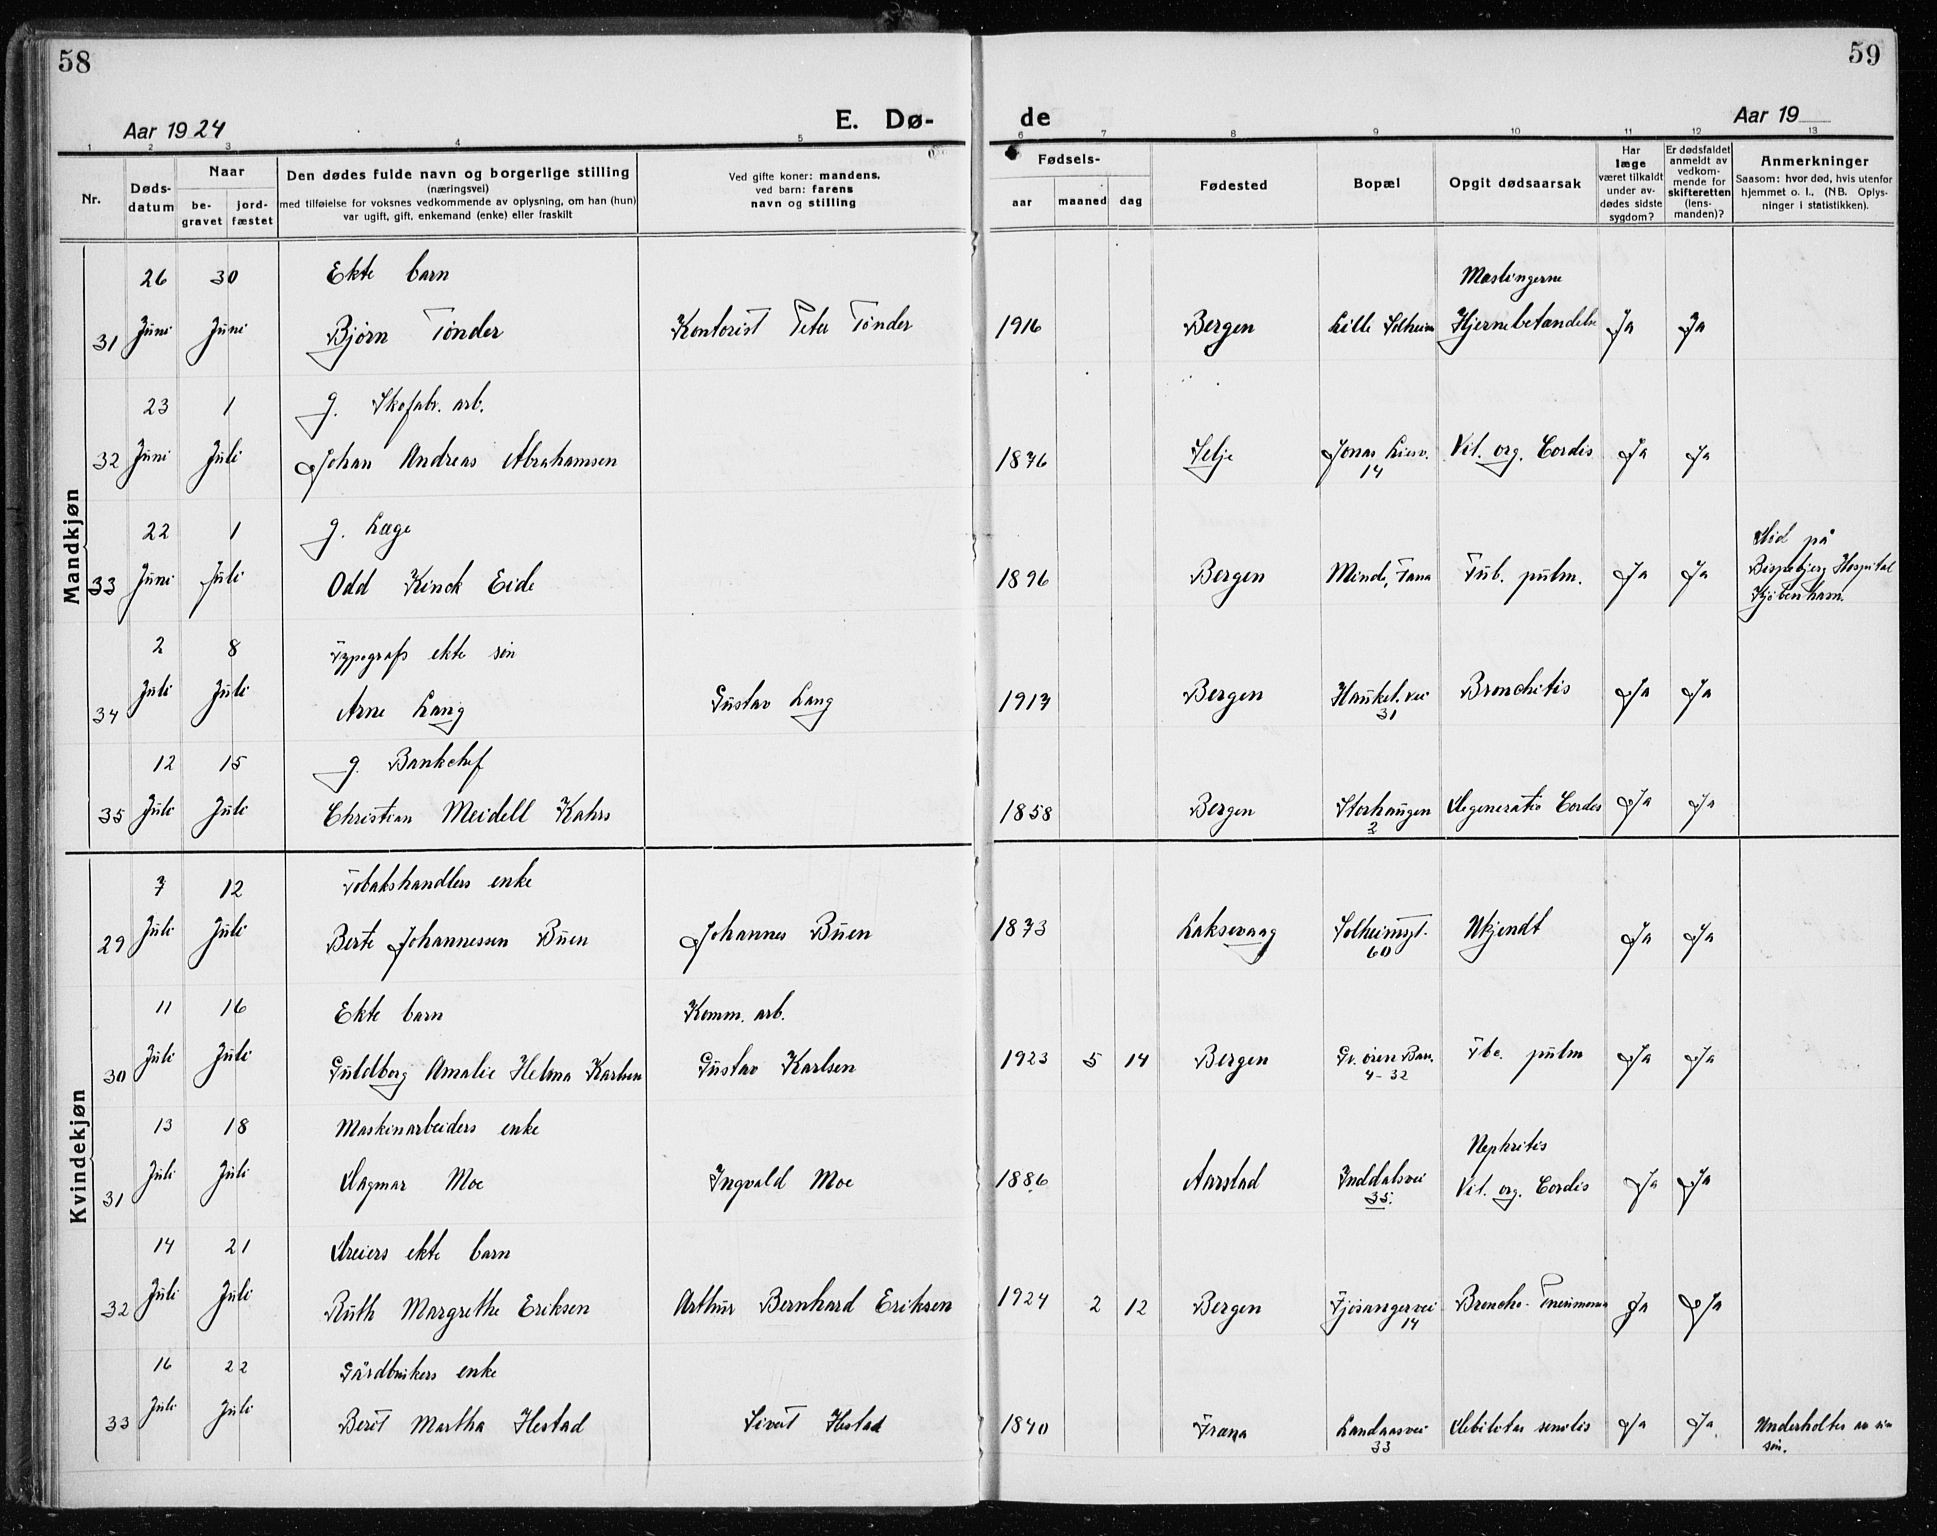 58
59
Aar 1924
E. Dø-
de
Aar 19
1 2 3 4 5 6 7 8 9 10 11 12 13
Nr.
Døds-
datum
Naar
be-
gravet
jord-
fæstet
Den dødes fulde navn og borgerlige stilling
(næringsvei)
med tilføielse for voksnes vedkommende av oplysning, om han (hun)
var ugift, gift, enkemand (enke) eller fraskilt
Ved gifte koner: mandens,
ved barn: farens
navn og stilling
Fødsels-
aar
maaned
dag
Fødested
Bopæl
Opgit dødsaarsak
Har
læge
været tilkaldt
under av-
dødes sidste
sygdom?
Er dødsfaldet
anmeldt av
vedkom-
mende for
skifteretten
(lens-
manden)?
Anmerkninger
Saasom: hvor død, hvis utenfor
hjemmet o. l., (NB. Oplys-
ninger i statistikken).
Mandkjøn
26 30 Ekte barn Meslingerne
31 Juni Juni Bjørn Tønder Kontorist Peter Tønder 1916 Bergen Lille Solheim Hjernebetændelse Ja Ja
23 1 g. Skofabr. arb.
32 Juni Juli Johan Andreas Abrahamsen 1876 Selje Jonas Liesv. Vit. org. Cordis Ja Ja
14
22 1 g. Læge Død på
33 Juni Juli Odd Kinck Eide 1896 Bergen Minde, Fana Tub. pulm. Ja Ja Bispebjerg Hospital
Kjøbenhavn.
2 8 Typografs ekte søn
34 Juli Juli Arne Lang Gustav Lang 1917 Bergen Haukel. vei Bronchitis Ja Ja
31
12 15 g. Bankchef
35 Juli Juli Christian Meidell Kahrs 1858 Bergen Storhaugen Degeneratio Cordis Ja Ja
2
Kvindekjøn
7 12 Tobakshandlers enke
29 Juli Juli Berte Johannessen Buen Johannes Buen 1873 Laksevaag Solheimsgt. Ukjendt Ja Ja
60
11 16 Ekte barn Komm. arb.
30 Juli Juli Guldborg Amalie Helma Karlsen Gustav Karlsen 1923 5 14 Bergen Gr. ören Bar. Tbc. pulm Ja Ja
4-32
13 18 Maskinarbeiders enke Nephritis
31 Juli Juli Dagmar Moe Ingvald Moe 1886 Aarstad Inddalsvei Vit. org. Cordis Ja Ja
35.
14 21 Dreiers ekte barn
32 Juli Juli Ruth Margrethe Eriksen Arthur Bernhard Eriksen 1924 2 12 Bergen Fjøsangervei Broncho-Pneumonia Ja Ja
14
16 22 Gårdbrukers enke
33 Juli Juli Berit Martha Hestad Sivert Hestad 1840 Fræna Landaasvei Debilitas senilis Ja Ja Underholtes av sin
33 søn.